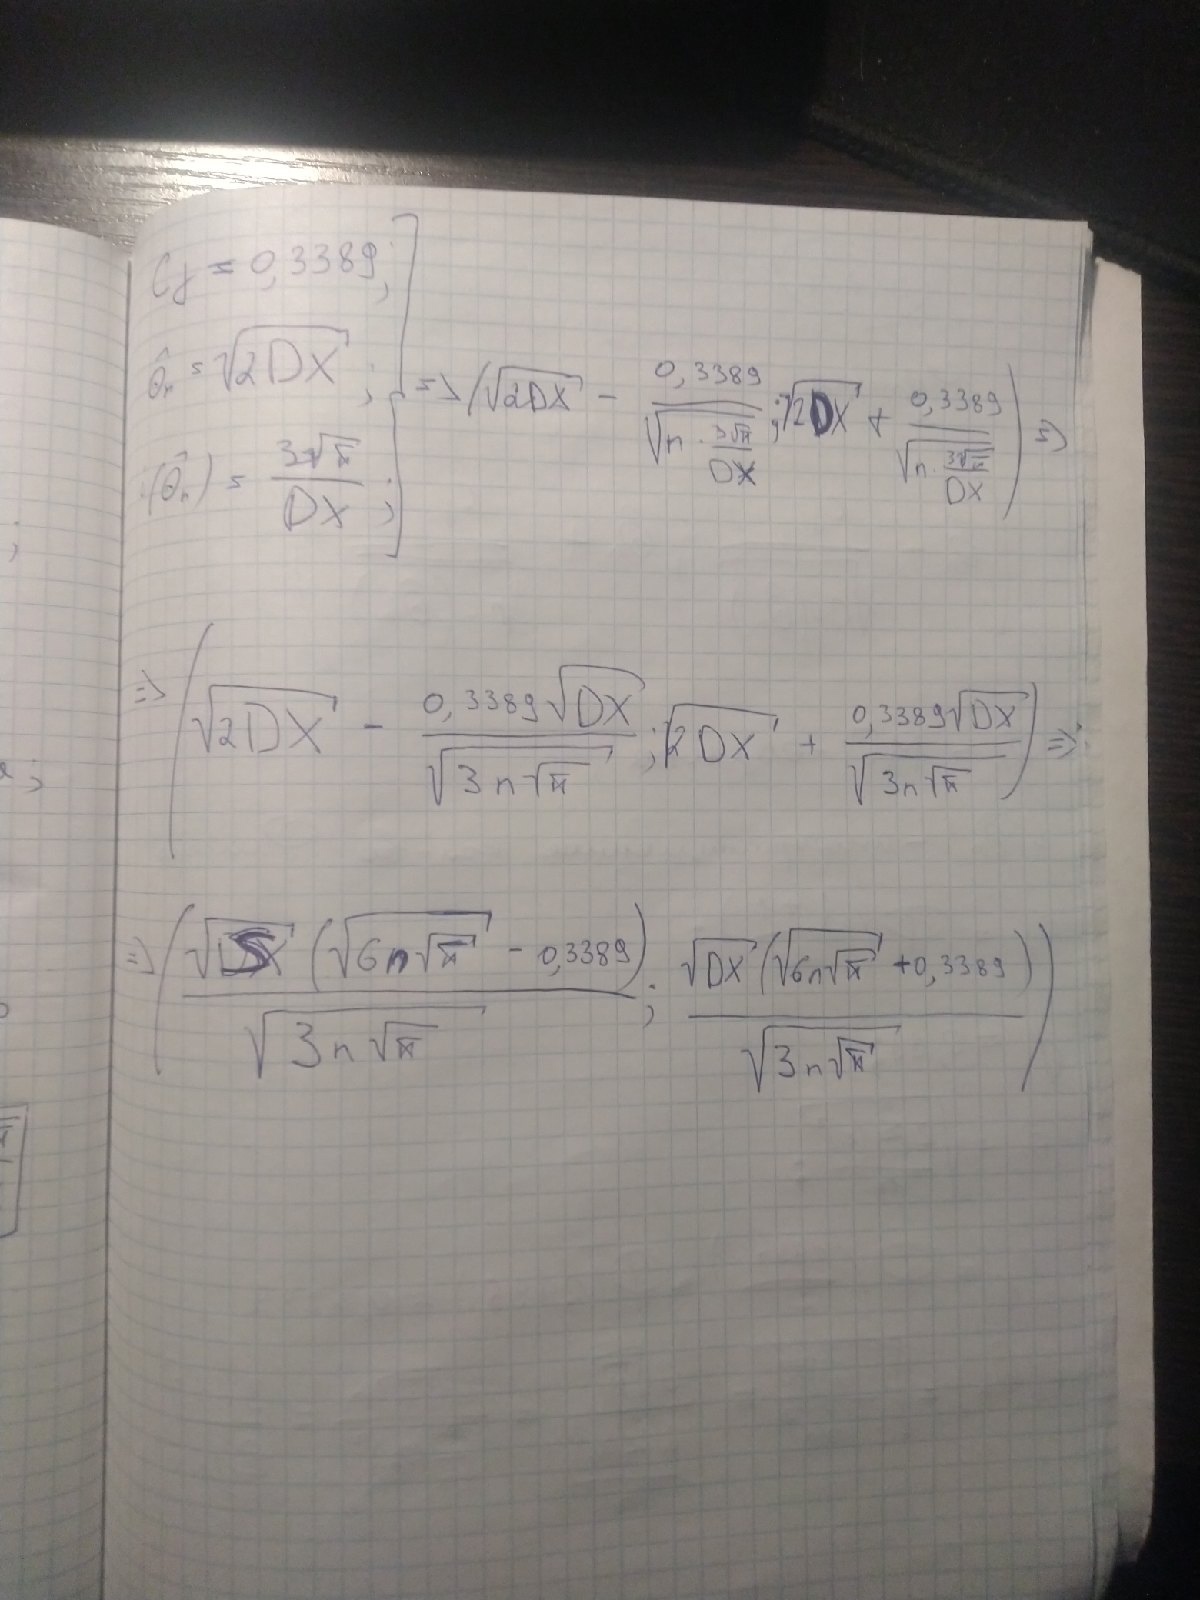 Cγ = 0,3389;
θ̂ₙ = √(2DX);
i(θ̂ₙ) = 3√π / DX;
=> (√(2DX) - 0,3389 / √(n · 3√π/DX); √(2DX) + 0,3389 / √(n · 3√π/DX)) =>
=> (√(2DX) - 0,3389√(DX) / √(3n√π); √(2DX) + 0,3389√(DX) / √(3n√π)) =>
=> (√(DX) (√(6n√π) - 0,3389) / √(3n√π); √(DX) (√(6n√π) + 0,3389) / √(3n√π))